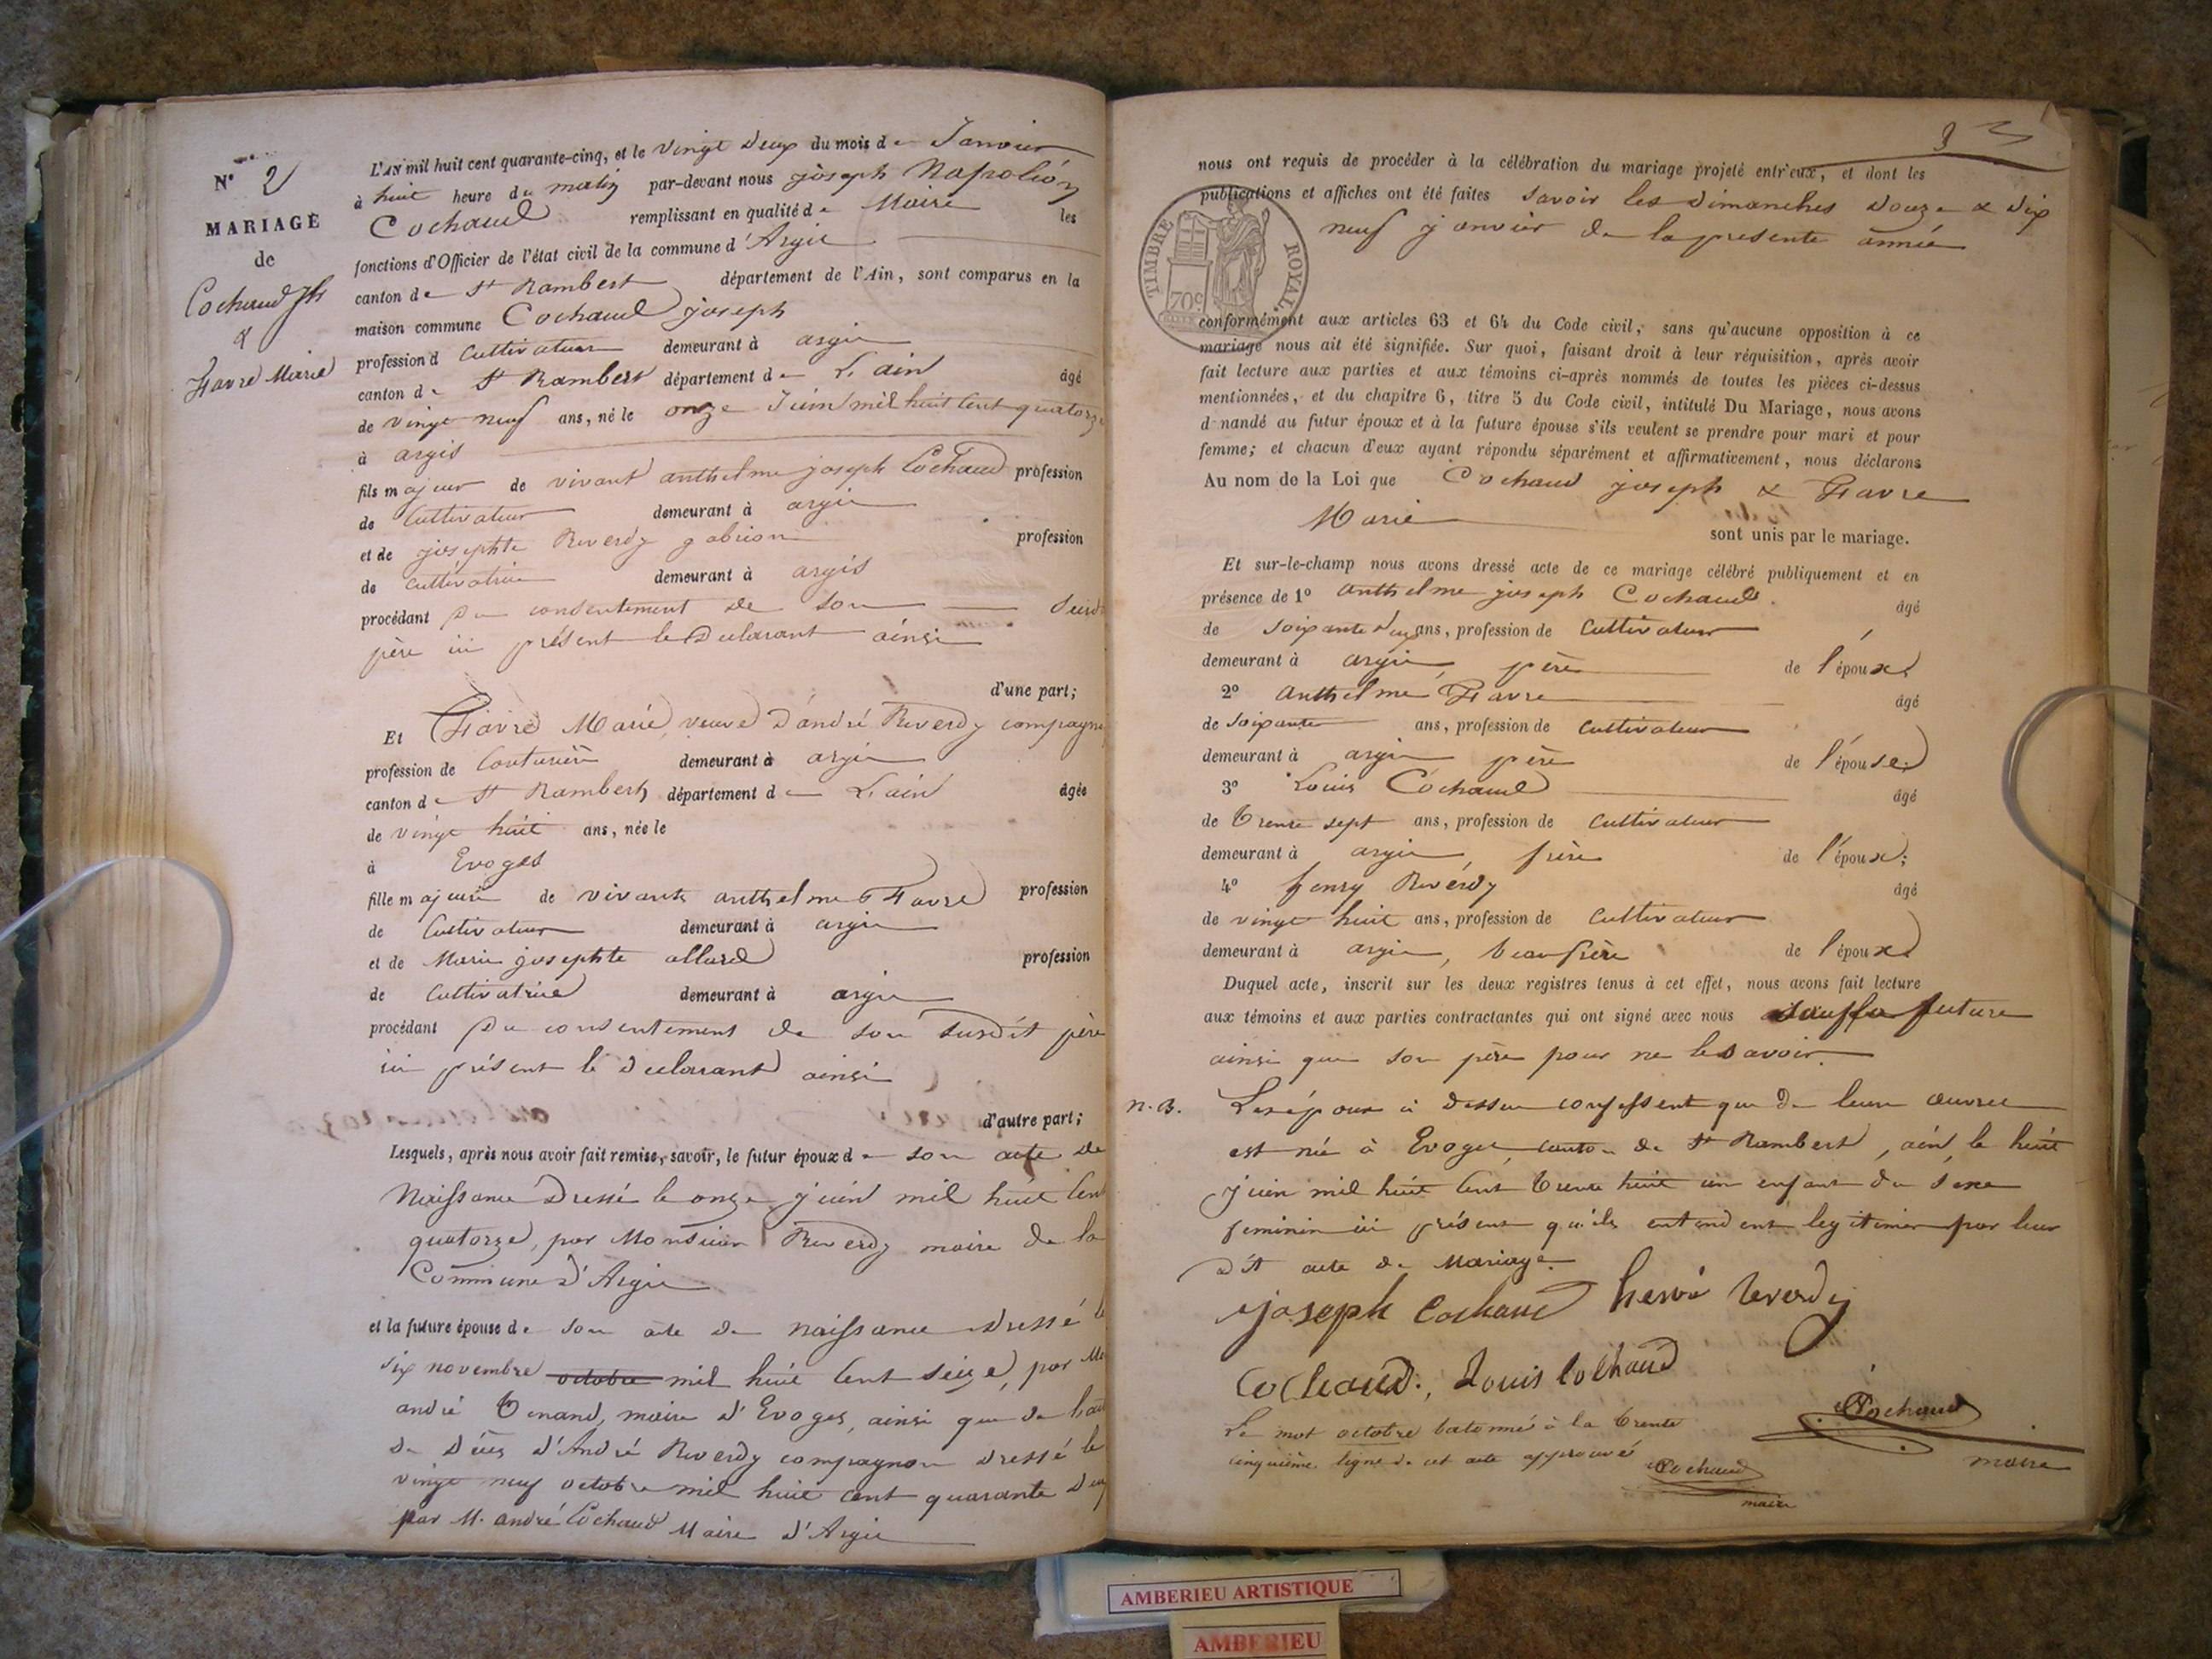 N° 2
MARIAGE
de
Cochaud Jh
&
Favre Marie
L'AN mil huit cent quarante-cinq, et le vingt deux du mois de Janvier
à huit heure du matin par-devant nous joseph Napoléon
Cochaud remplissant en qualité de Maire les
fonctions d'Officier de l'état civil de la commune d'Argis
canton de St Rambert département de l'Ain, sont comparus en la
maison commune Cochaud joseph
profession d cultivateur demeurant à argis
canton de St Rambert département de L'ain âgé
de vingt neuf ans, né le onze Juin mil huit cent quatorze
à argis
fils majeur de vivant anthelme joseph Cochaud profession
de cultivateur demeurant à argis
et de josephte Reverdy gabrion profession
de cultivatrice demeurant à argis
procédant du consentement de son susdit
père ici présent le déclarant ainsi
d'une part;
Et Favre Marie, veuve d'andré Reverdy compagnon
profession de Couturière demeurant à argis
canton de St Rambert département de L'ain âgée
de vingt huit ans, née le
à Evoges
fille majeure de vivants anthelme Favre profession
de Cultivateur demeurant à argis
et de Marie josephte allard profession
de cultivatrice demeurant à argis
procédant du consentement de son susdit père
ici présent le déclarant ainsi
d'autre part;
Lesquels, après nous avoir fait remise, savoir, le futur époux de son acte de
Naissance Dressé le onze juin mil huit cent
quatorze, par Monsieur Reverdy maire de la
Commune d'Argis
et la future épouse de son acte de naissance dressé le
six novembre octobre mil huit cent seize, par Mr
andré Tenand, maire d'Evoges, ainsi que de l'acte
de décès d'André Reverdy compagnon dressé le
vingt neuf octobre mil huit cent quarante deux
par M. andré Cochaud Maire d'Argis
3
nous ont requis de procéder à la célébration du mariage projeté entr'eux, et dont les
publications et affiches ont été faites savoir les dimanches douze & dix
neuf janvier de la presente année
TIMBRE ROYAL.
70c
conformément aux articles 63 et 64 du Code civil, sans qu'aucune opposition à ce
mariage nous ait été signifiée. Sur quoi, faisant droit à leur réquisition, après avoir
fait lecture aux parties et aux témoins ci-après nommés de toutes les pièces ci-dessus
mentionnées, et du chapitre 6, titre 5 du Code civil, intitulé Du Mariage, nous avons
d nandé au futur époux et à la future épouse s'ils veulent se prendre pour mari et pour
femme; et chacun d'eux ayant répondu séparément et affirmativement, nous déclarons
Au nom de la Loi que Cochaud joseph & Favre
Marie
sont unis par le mariage.
Et sur-le-champ nous avons dressé acte de ce mariage célébré publiquement et en
présence de 1° anthelme joseph Cochaud. âgé
de soixante deux ans, profession de Cultivateur
demeurant à argis, père de l'époux;
2° anthelme Favre âgé
de soixante ans, profession de cultivateur
demeurant à argis père de l'épouse;
3° Louis Cochaud âgé
de trente sept ans, profession de cultivateur
demeurant à argis, frère de l'époux;
4° henry Reverdy âgé
de vingt huit ans, profession de cultivateur
demeurant à argis, beau frère de l'époux
Duquel acte, inscrit sur les deux registres tenus à cet effet, nous avons fait lecture
aux témoins et aux parties contractantes qui ont signé avec nous sauf la future
ainsi que son père pour ne le savoir.
n. B. Les époux ci dessus confessent que de leurs œuvres
est née à Evoges, canton de St Rambert, ain, le huit
juin mil huit cent trente huit un enfant du sexe
feminin ici présent qu'ils entendent legitimer par leur
dit acte de Mariage.
joseph Cochaud henri Reverdy
Cochaud., Louis Cochaud
Le mot octobre batonné à la trente
cinquième ligne de cet acte approuvé
Cochaud
maire
Cochaud
maire
AMBERIEU ARTISTIQUE
AMBERIEU